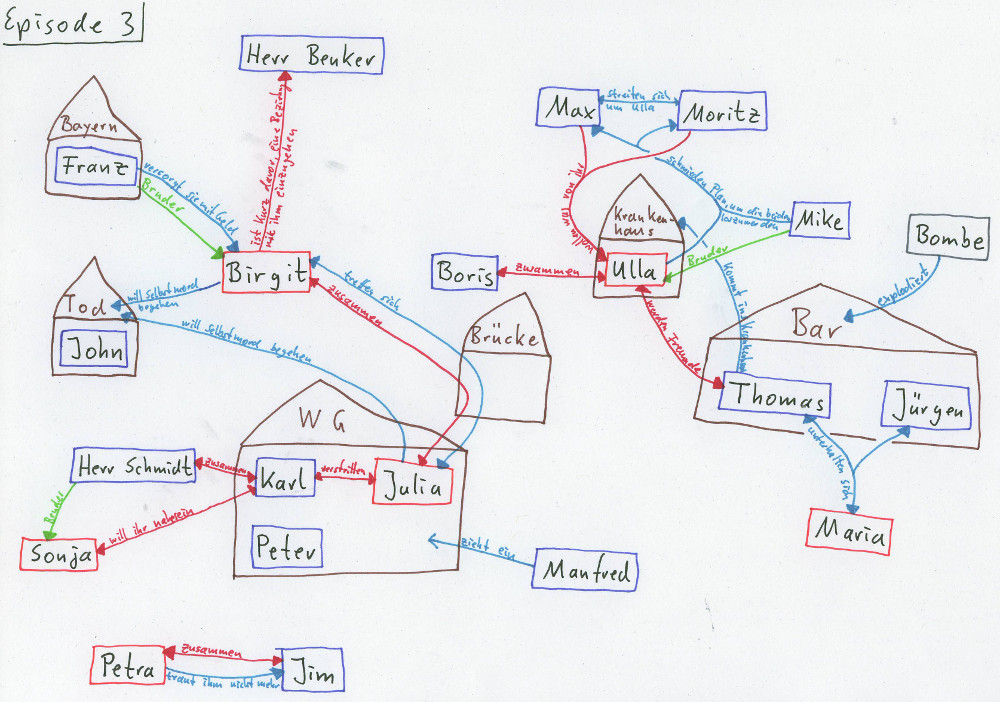 Episode 3
Herr Beuker
ist kurz davor, eine Beziehung
mit ihm einzugehen
Bayern
Franz
versorgt sie mit Geld
Bruder
Birgit
will Selbstmord
begehen
Tod
John
will Selbstmord begehen
treffen sich
zusammen
Brücke
WG
Herr Schmidt
zusammen
Karl
verstritten
Julia
Bruder
will ihr nahe sein
Sonja
Peter
zieht ein
Manfred
Petra
zusammen
traut ihm nicht mehr
Jim
Max
streiten sich
um Ulla
Moritz
wollen was von ihr
schmieden Plan, um die beiden
loszuwerden
Mike
Bruder
Krankenhaus
Boris
zusammen
Ulla
wurden Freunde
kommt ins Krankenhaus
Bombe
explodiert
Bar
Thomas
Jürgen
unterhalten sich
Maria